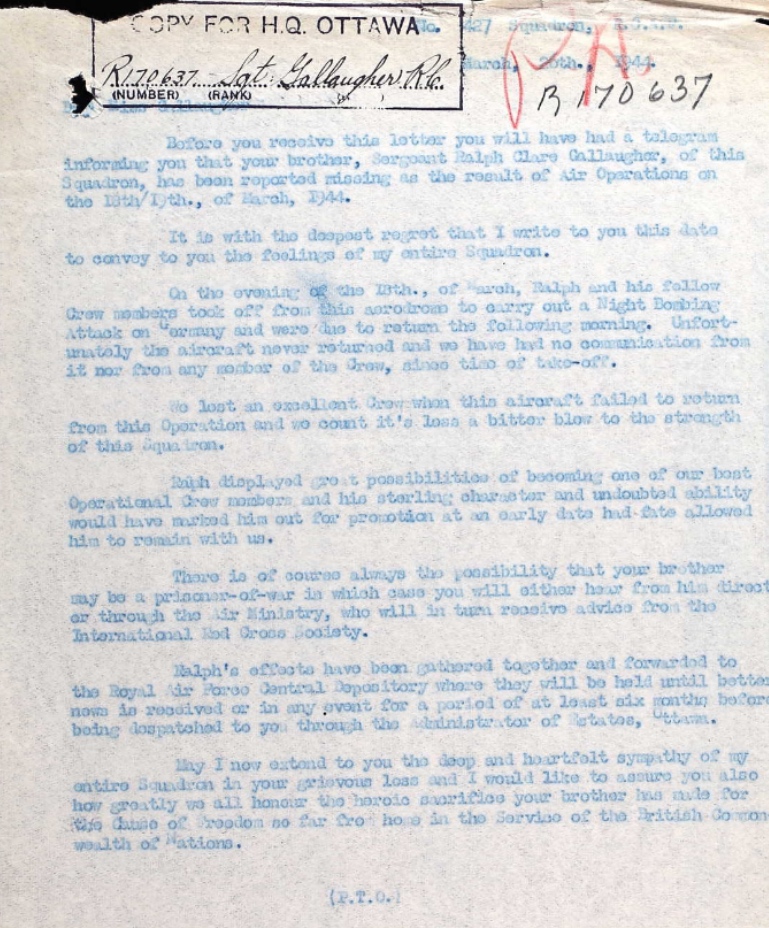 COPY FOR H.Q. OTTAWA
No. 427 Squadron, R.C.A.F.
R170637 Sgt. Gallaugher R.C.
March, 20th., 1944.
(NUMBER) (RANK)
R170637
Before you receive this letter you will have had a telegram
informing you that your brother, Sergeant Ralph Clare Gallaugher, of this
Squadron, has been reported missing as the result of Air Operations on
the 18th/19th., of March, 1944.
It is with the deepest regret that I write to you this date
to convey to you the feelings of my entire Squadron.
On the evening of the 18th., of March, Ralph and his fellow
Crew members took off from this aerodrome to carry out a Night Bombing
Attack on Germany and were due to return the following morning. Unfort-
unately the aircraft never returned and we have had no communication from
it nor from any member of the Crew, since time of take-off.
We lost an excellent Crew when this aircraft failed to return
from this Operation and we count it's loss a bitter blow to the strength
of this Squadron.
Ralph displayed great possibilities of becoming one of our best
Operational Crew members and his sterling character and undoubted ability
would have marked him out for promotion at an early date had fate allowed
him to remain with us.
There is of course always the possibility that your brother
may be a prisoner-of-war in which case you will either hear from him direct
or through the Air Ministry, who will in turn receive advice from the
International Red Cross Society.
Ralph's effects have been gathered together and forwarded to
the Royal Air Force Central Depository where they will be held until better
news is received or in any event for a period of at least six months before
being despatched to you through the Administrator of Estates, Ottawa.
May I now extend to you the deep and heartfelt sympathy of my
entire Squadron in your grievous loss and I would like to assure you also
how greatly we all honour the heroic sacrifice your brother has made for
the Cause of Freedom so far from home in the Service of the British Common-
wealth of Nations.
(P.T.O.)